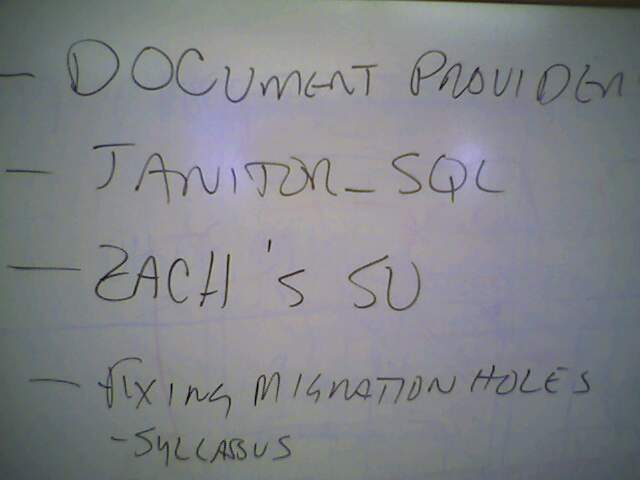 - DOCUMENT PROVIDER
- JANITOR_SQL
- ZACH'S SU
- FIXING MIGRATION HOLES
- SYLLABUS